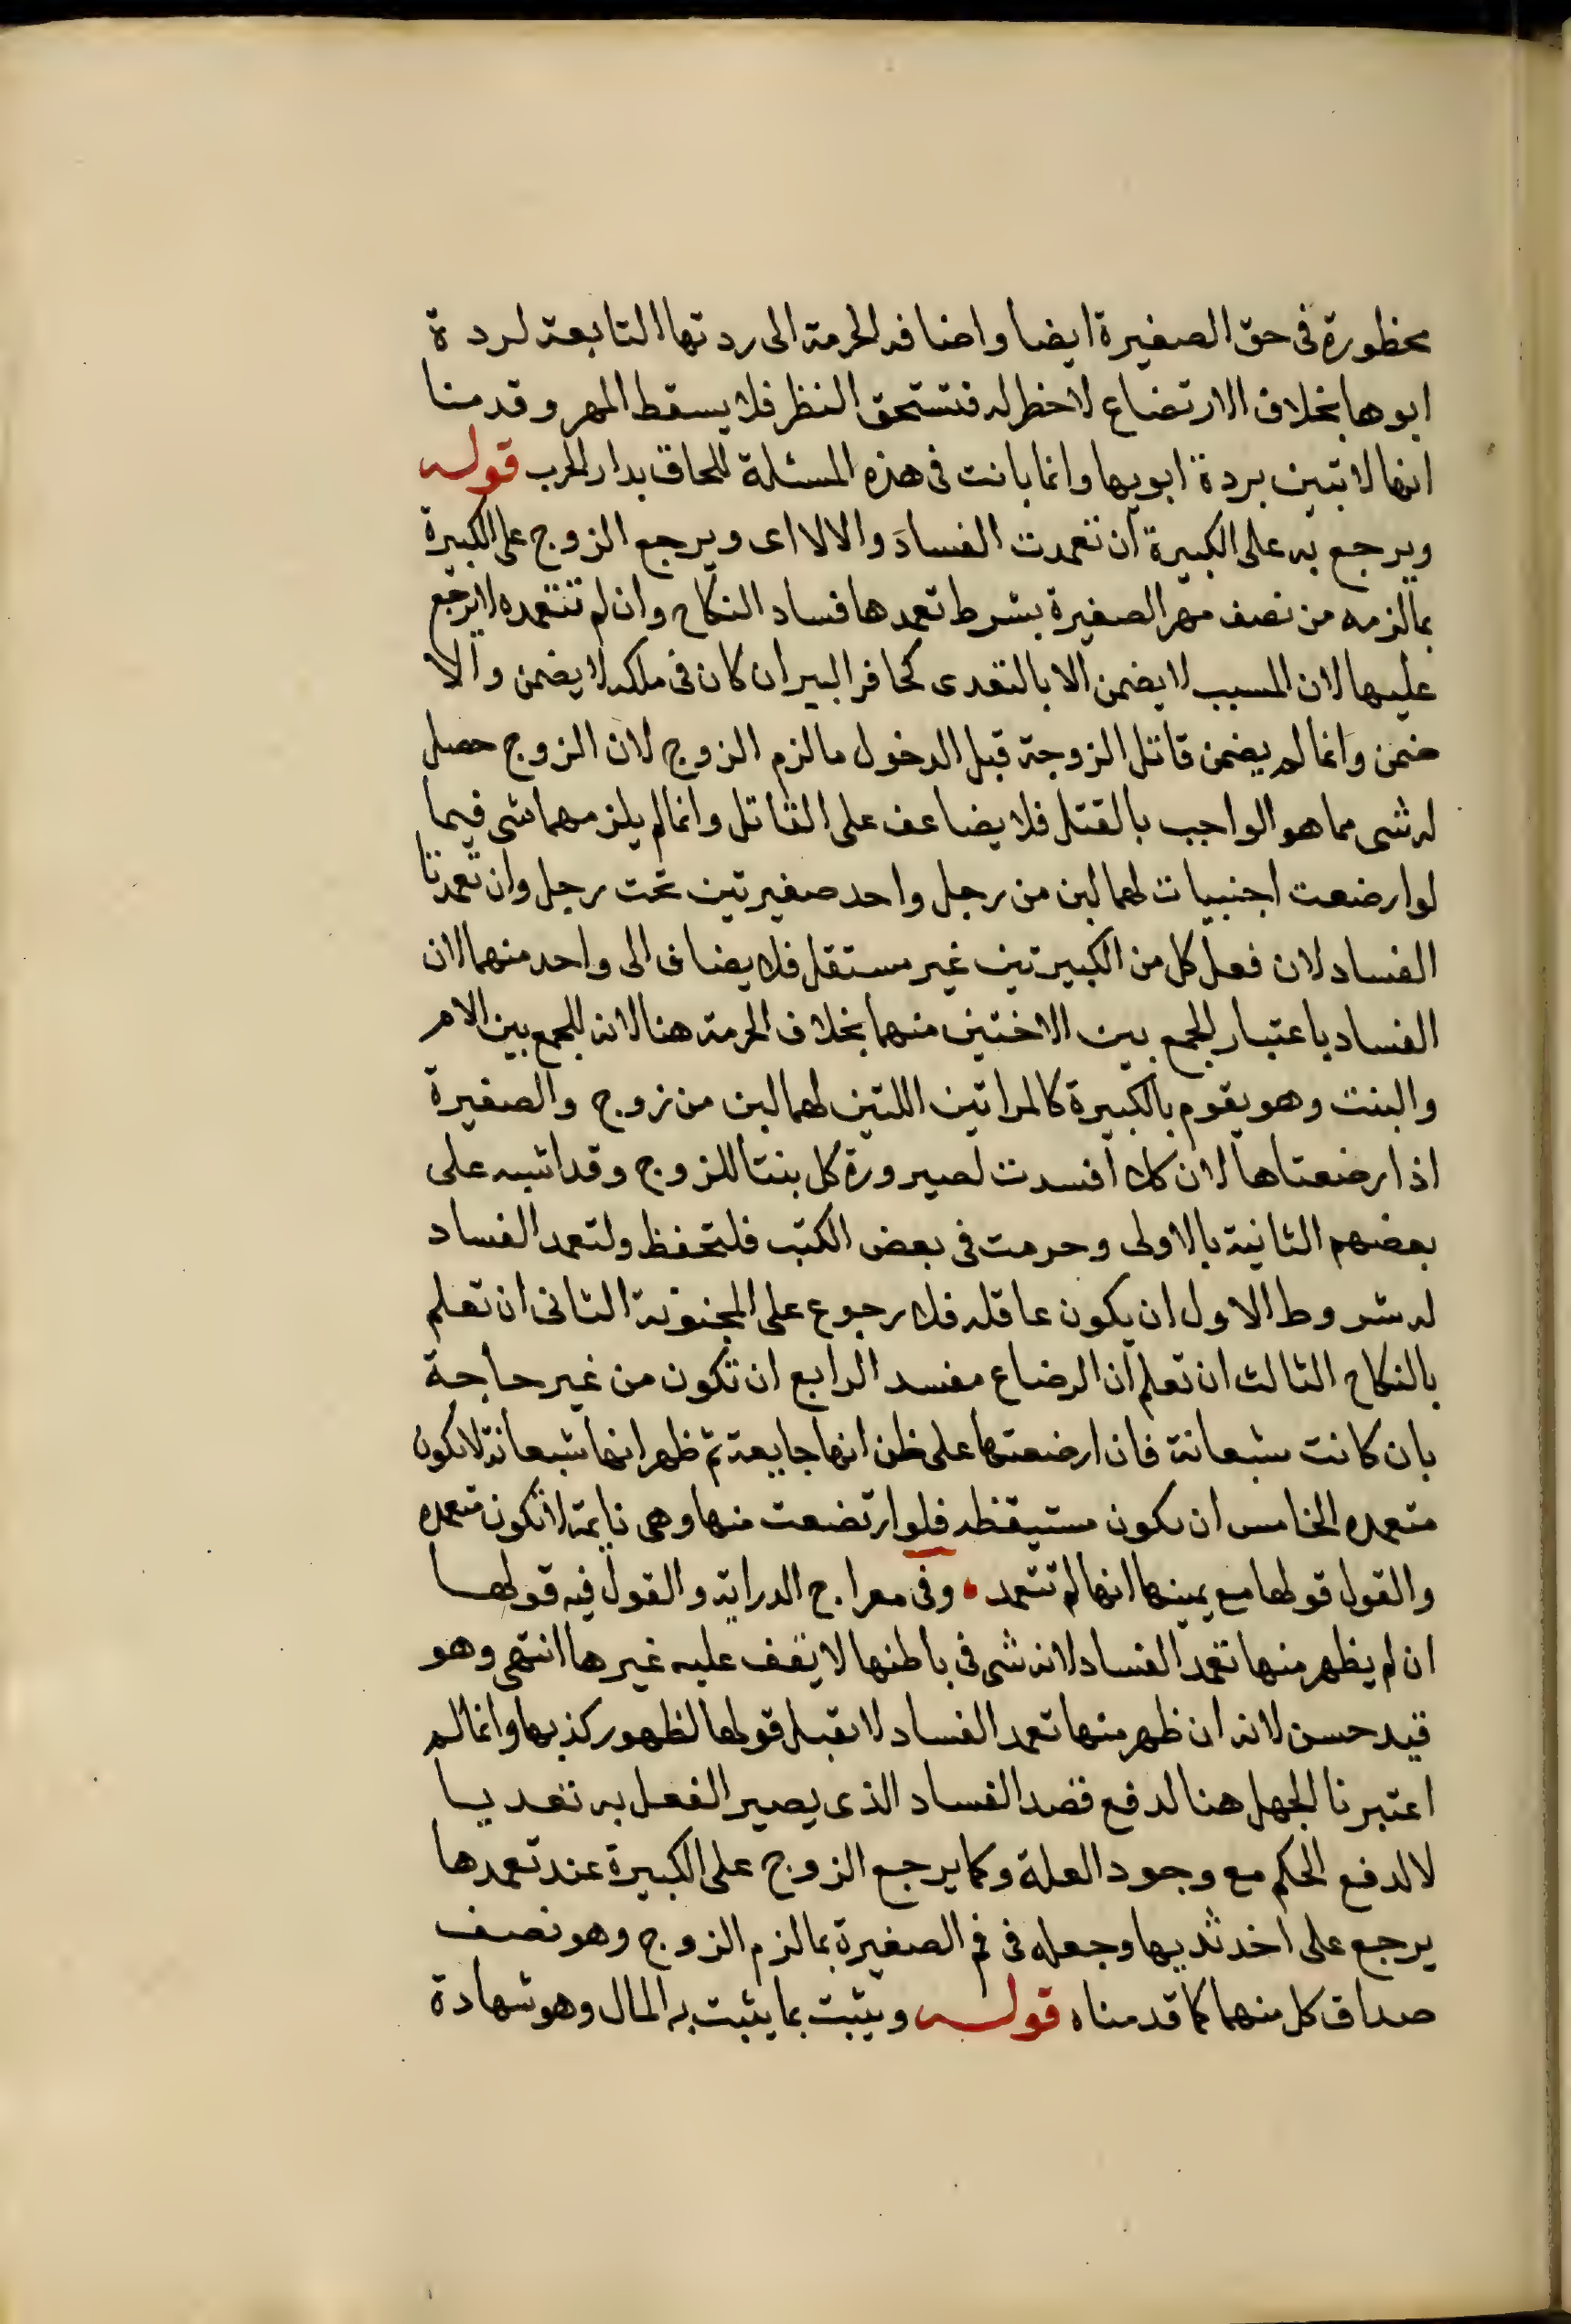 محظورة فى حق الصغيرة ايضا واضافه الحرمة الى ردتها التابعة لردة
ابوها بخلاف الارتضاع لاخطر له فتستحق النظر فلا يسقط المهر وقدمنا
انها لا تبين بردة ابويها وانما بانت فى هذه المسئلة للحاق بدار الحرب قوله
ويرجع به على الكبيرة ان تعمدت الفساد والالا اى ويرجع الزوج على الكبيرة
بمالزمه من نصف مهر الصغيرة بشرط تعمدها فساد النكاح وان لم تتعمده لايرجع
عليها لان المسبب لا يضمن الا بالتعدى كحافر البير ان كان فى ملكه لا يضمن والا
ضمن وانما لم يضمن قاتل الزوجة قبل الدخول مالزم الزوج لان الزوج حصل
له شى مما هو الواجب بالقتل فلا يضاعف على القاتل وانما لم يلزمهما شى فيما
لو ارضعت اجنبيات لهما لبن من رجل واحد صغيرتين تحت رجل وان تعمدتا
الفساد لان فعل كل من الكبيرتين غير مستقل فلا يضاف الى واحد منهما لان
الفساد باعتبار الجمع بين الاختين منهما بخلاف الحرمة هنا لانه للجمع بين الام
والبنت وهو يقوم بالكبيرة كالمراتين اللتين لهما لبن من زوج والصغيرة
اذا ارضعتاها لان كلا افسدت لصيرورة كل بنتا للزوج وقد اشبه على
بعضهم الثانية بالاولى وحرمت فى بعض الكتب فلتحفظ ولتعمد الفساد
له شروط الاول ان يكون عاقله فلا رجوع على المجنونة الثانى ان تعلم
بالنكاح الثالث ان تعلم ان الرضاع مفسد الرابع ان تكون من غير حاجة
بان كانت شبعانة فان ارضعتها على ظن انها جايعة ثم ظهر انها شبعانة لا تكون
متعمده الخامس ان تكون مستيقظه فلو ارتضعت منها وهى نايمة لا تكون متعمده
والقول قولها مع يمينها انها لم تتعمد وفى معراج الدراية والقول فيه قولها
ان لم يظهر منها تعمد الفساد لانه شى فى باطنها لا يقف عليه غيرها انتهى وهو
قيد حسن لانه ان ظهر منها تعمد الفساد لا تقبل قولها لظهور كذبها وانما لم
اعتبرنا الجهل هنا لدفع قصد الفساد الذى يصير الفعل به تعديا
لا لدفع الحكم مع وجود العلة وكما يرجع الزوج على الكبيرة عند تعمدها
يرجع على اخذ ثديها وجعله فى فم الصغيرة بمالزم الزوج وهو نصف
صداق كل منهما كما قدمناه قوله ويثبت بما يثبت به المال وهو شهادة